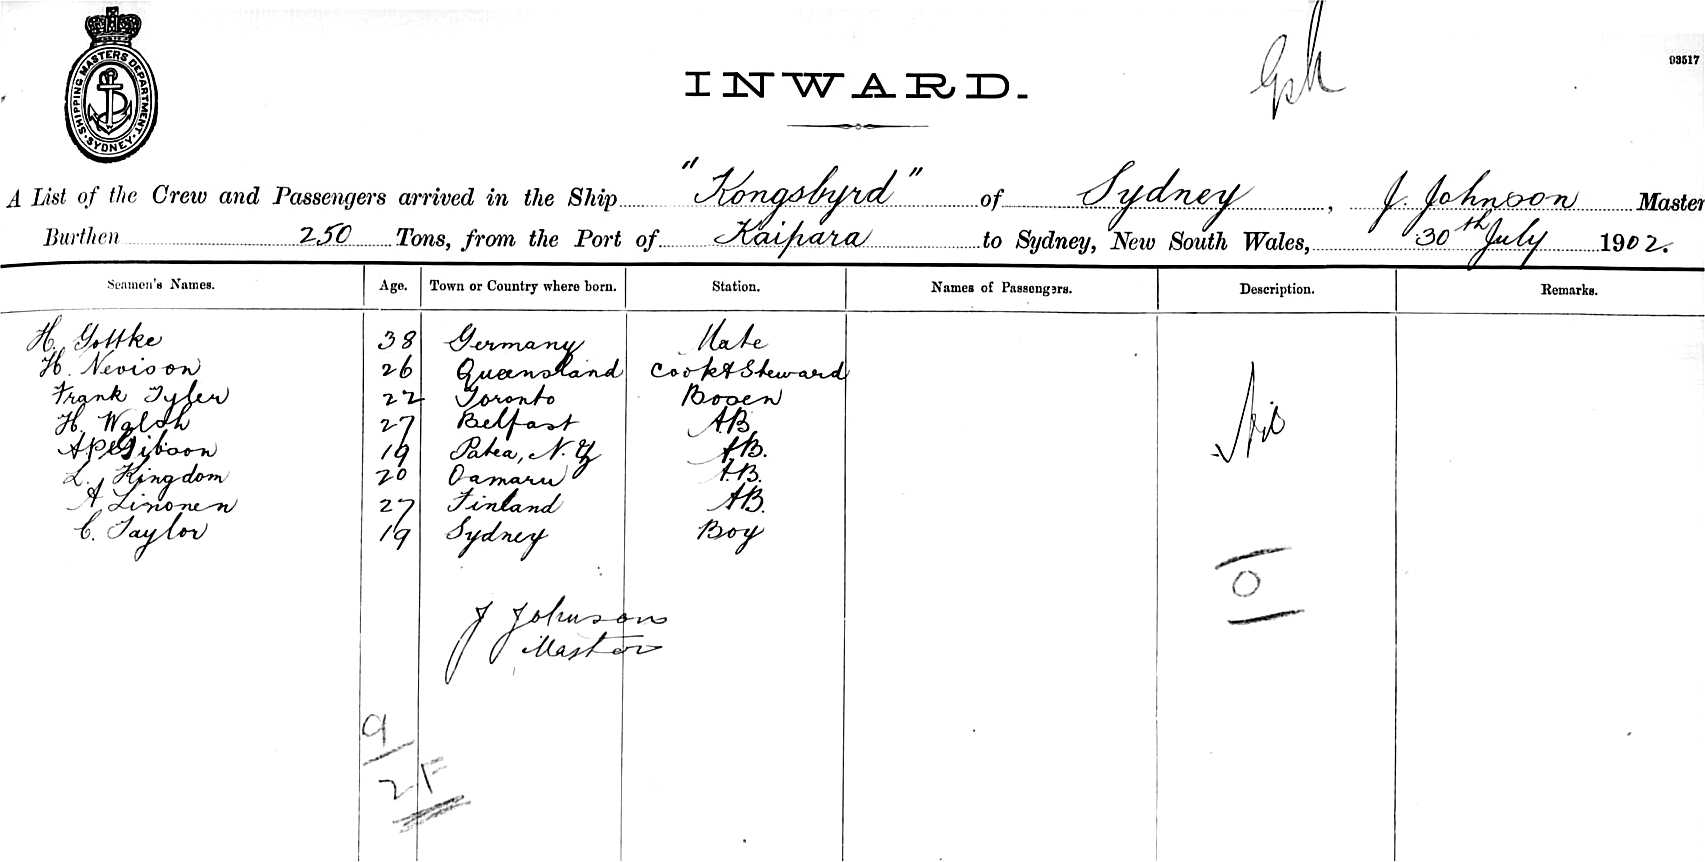 SHIPPING MASTERS DEPARTMENT. SYDNEY.
INWARD.
93517
A List of the Crew and Passengers arrived in the Ship "Kongsbyrd" of Sydney, J. Johnson Master
Burthen 250 Tons, from the Port of Kaipara to Sydney, New South Wales, 30th July 1902.
Seamen's Names. Age. Town or Country where born. Station. Names of Passengers. Description. Remarks.
H. Gottke 38 Germany Mate
H. Nevison 26 Queensland Cook & Steward
Frank Tyler 22 Toronto Bosen
H. Walsh 27 Belfast AB
A P Gibson 19 Patea, N.Z AB.
L. Kingdom 20 Oamaru A.B.
A Linonen 27 Finland AB.
C. Taylor 19 Sydney Boy
Nil
0
J Johnson
Master
9
2F